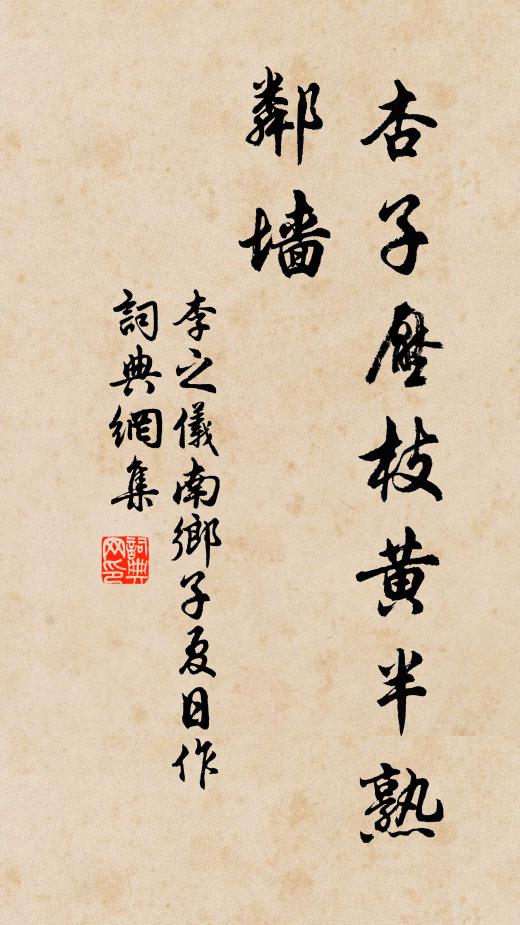 杏子壓枝黄半熟
鄰墙
李之儀南鄉子夏日作
詞典網集
詞典
网印